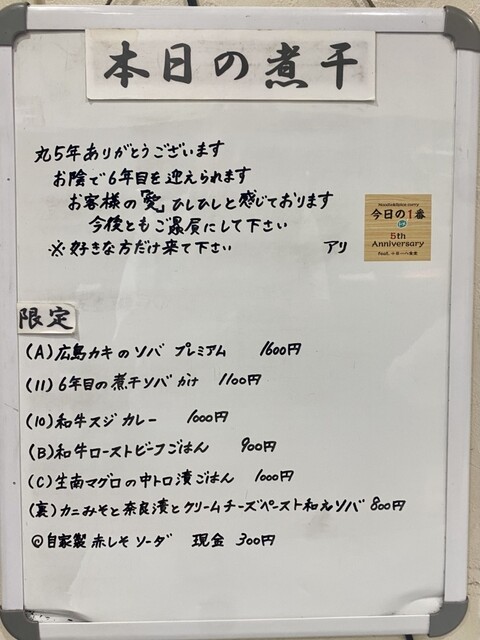 本日の煮干
丸5年ありがとうございます
お陰で6年目を迎えられます
お客様の「愛」ひしひしと感じております
今後ともご贔屓にして下さい
※好きな方だけ来て下さい
アリ
今日の1番
5th
Anniversary
限定
(A)広島カキのソバ プレミアム 1600円
(11)6年目の煮干ソバ かけ 1100円
(10)和牛スジカレー 1000円
(B)和牛ローストビーフごはん 900円
(C)生南マグロの中トロ漬ごはん 1000円
(裏)カニみそと奈良漬とクリームチーズペースト和えソバ 800円
◎自家製 赤しそソーダ 現金 300円